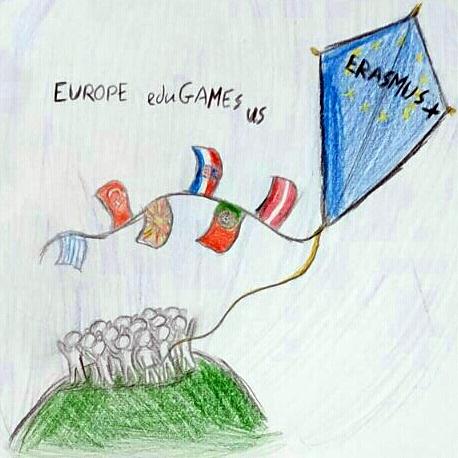 EUROPE eduGAMEs us
ERASMUS+